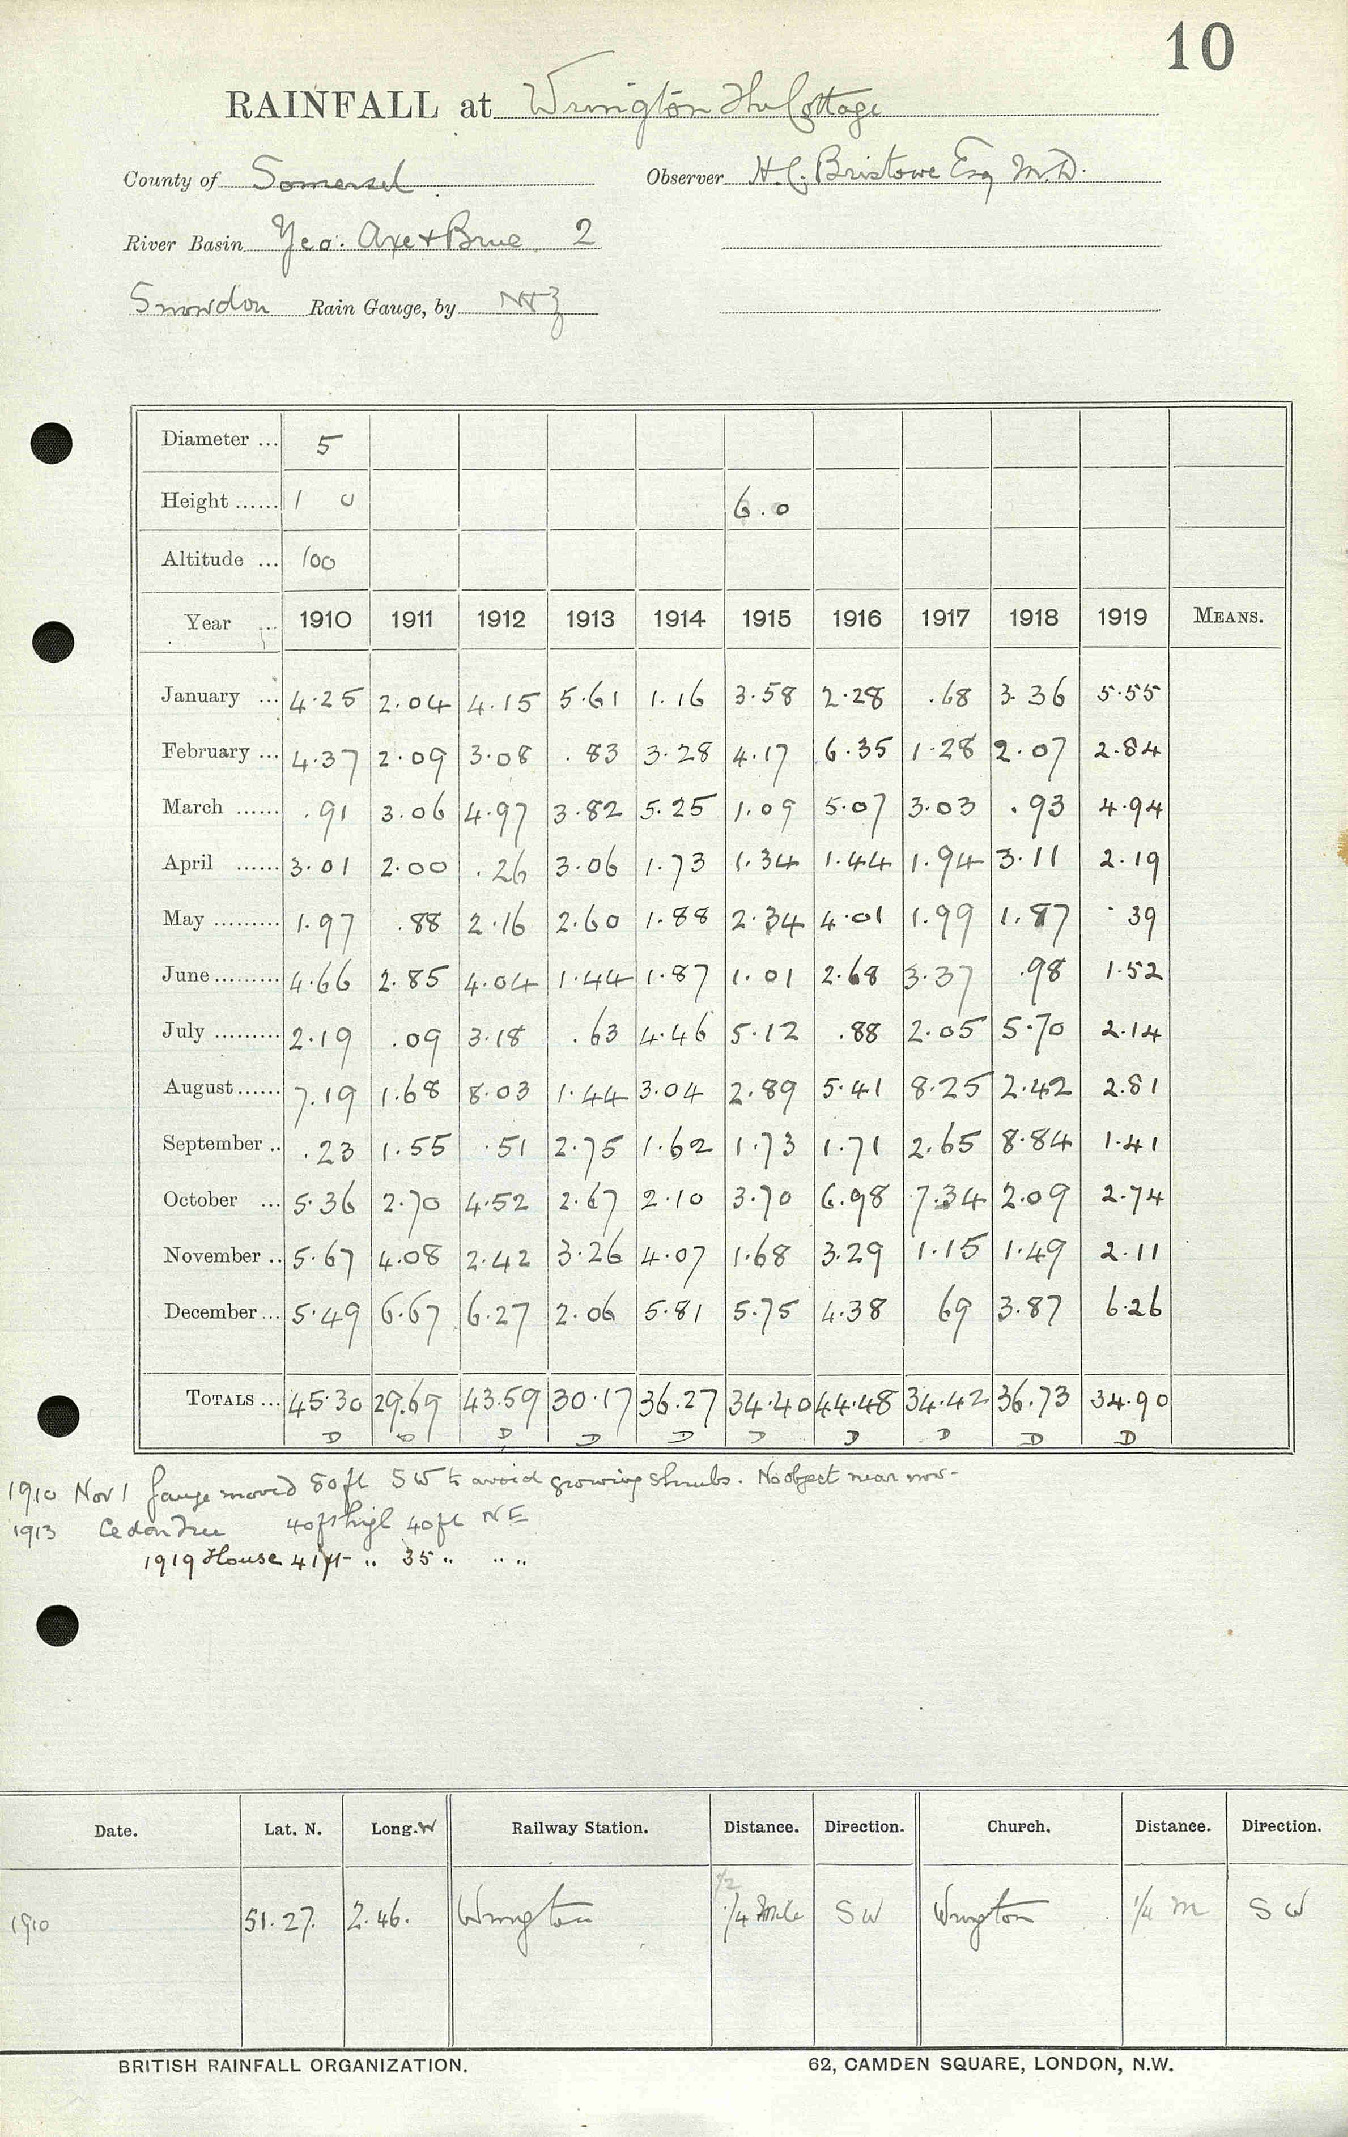 10
RAINFALL at Wrington The Cottage
County of Somerset. Observer H. C. Bristowe Esq M.D.
River Basin Yeo. Axe & Brue. 2
Snowdon Rain Gauge, by N & Z
Diameter ... 5
Height ...... 1 0 6.0
Altitude ... 100
Year ... 1910 1911 1912 1913 1914 1915 1916 1917 1918 1919 MEANS.
January ... 4.25 2.04 4.15 5.61 1.16 3.58 2.28 .68 3.36 5.55
February ... 4.37 2.09 3.08 .83 3.28 4.17 6.35 1.28 2.07 2.84
March ...... .91 3.06 4.97 3.82 5.25 1.09 5.07 3.03 .93 4.94
April ...... 3.01 2.00 .26 3.06 1.73 1.34 1.44 1.94 3.11 2.19
May ......... 1.97 .88 2.16 2.60 1.88 2.34 4.01 1.99 1.87 .39
June ......... 4.66 2.85 4.04 1.44 1.87 1.01 2.68 3.37 .98 1.52
July ......... 2.19 .09 3.18 .63 4.46 5.12 .88 2.05 5.70 2.14
August ...... 7.19 1.68 8.03 1.44 3.04 2.89 5.41 8.25 2.42 2.81
September .. .23 1.55 .51 2.75 1.62 1.73 1.71 2.65 8.84 1.41
October ... 5.36 2.70 4.52 2.67 2.10 3.70 6.98 7.34 2.09 2.74
November .. 5.67 4.08 2.42 3.26 4.07 1.68 3.29 1.15 1.49 2.11
December ... 5.49 6.67 6.27 2.06 5.81 5.75 4.38 69 3.87 6.26
TOTALS ... 45.30 29.69 43.59 30.17 36.27 34.40 44.48 34.42 36.73 34.90
D D D D D D D D D D
1910 Nov 1 Gauge moved 80 ft SW to avoid growing shrubs. No object near now-
1913 Cedar Tree 40 ft high 40 ft NE
1919 House 41 ft " 35 " " "
Date. Lat. N. Long. W Railway Station. Distance. Direction. Church. Distance. Direction.
1/2
1910 51.27. 2.46. Wrington 1/4 Mile SW Wrington 1/4 m SW
BRITISH RAINFALL ORGANIZATION. 62, CAMDEN SQUARE, LONDON, N.W.